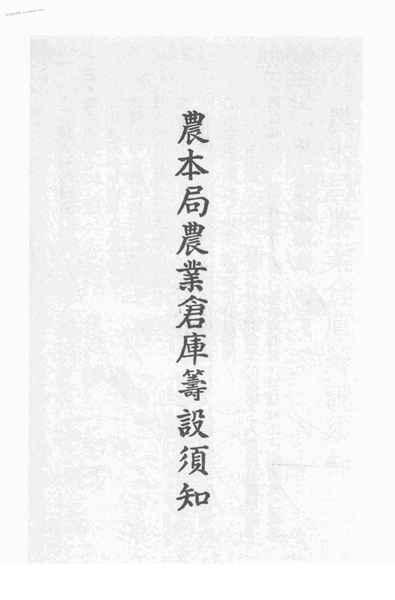 農本局農業倉庫籌設須知